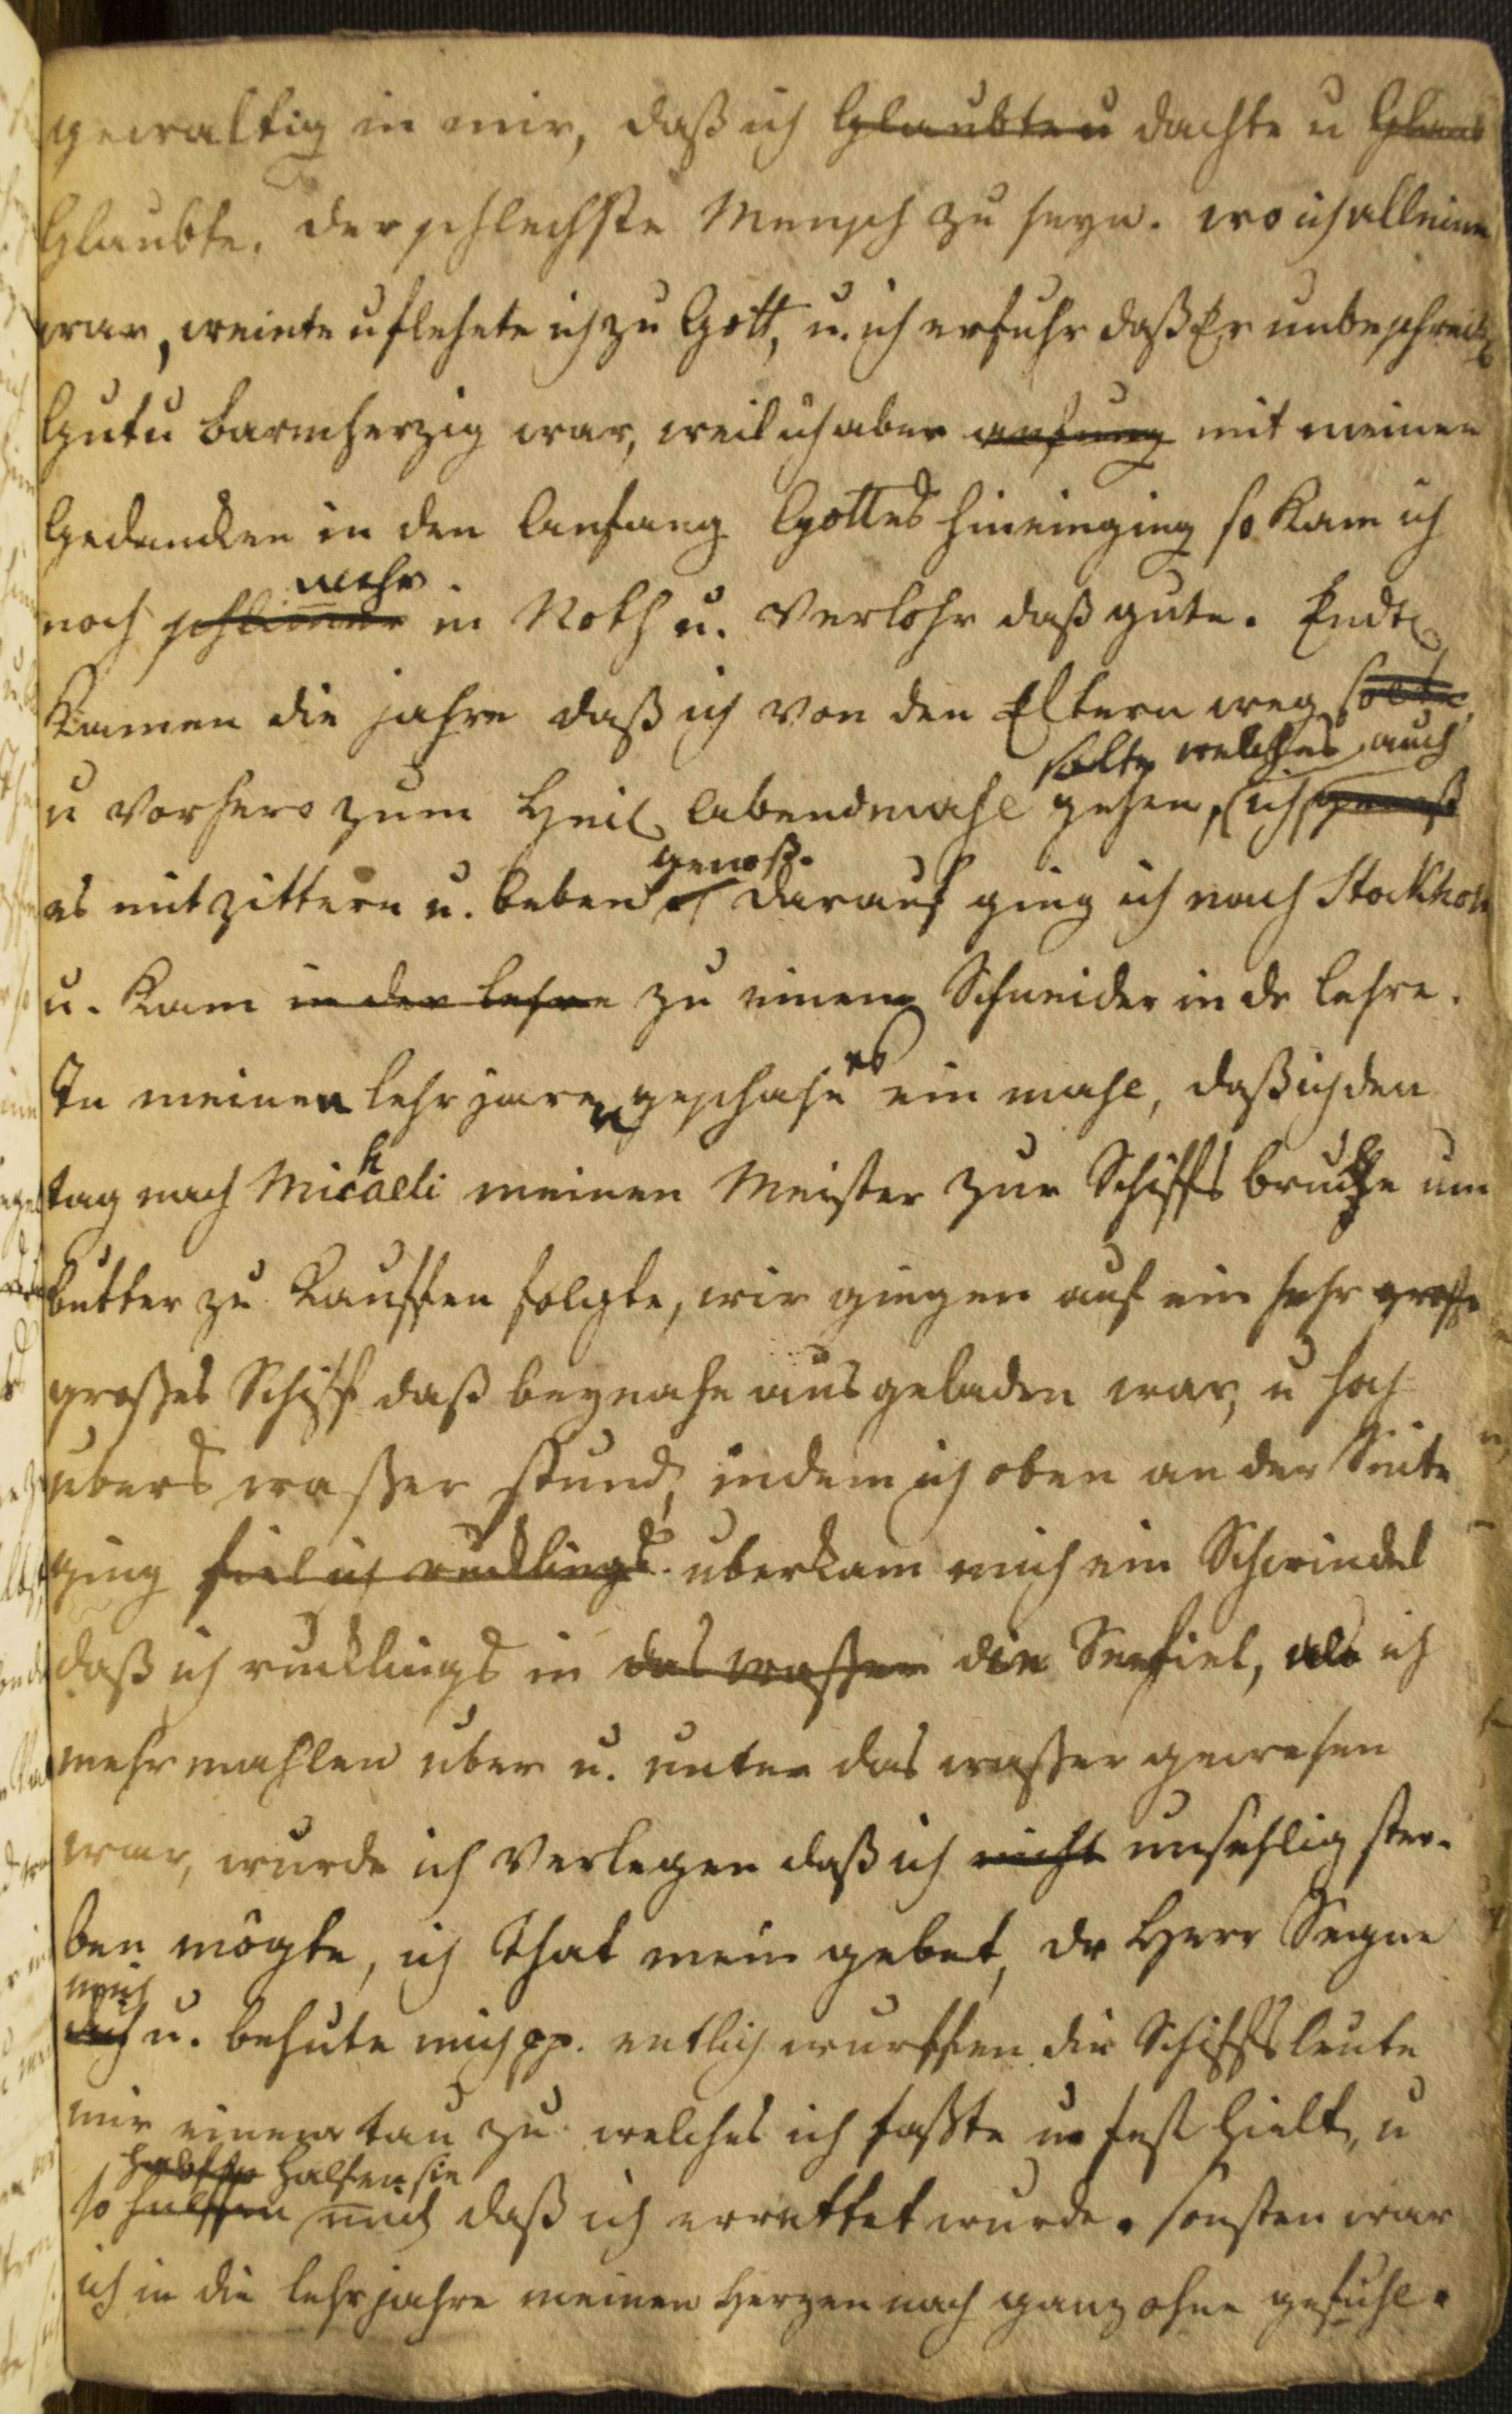 gewaltig in mir, daß ich Glaubte u dachte u Glaub
Glaubte, der schlechste Mensch zu seyn. wo ich alleine
war, weinte u flehete ich zu Gott, u. ich erfuhr daß Er unbeschreibl
Gut u barmherzig war, weil ich aber anfung mit meinen
Gedancken in den Anfang Gottes hineinging so kam ich
mehr
noch schlimmer in Noth u. Verlohr daß gute. Endl
Kamen die jahre daß ich von den Eltern weg solte
solte welches auch
u vorhero zum Heil Abendmahl gehen, ich genoß
genoß.
es mit zittern u. beben darauf ging ich nach Stockholm
u. kam in der lehre zu einem Schneider in dr lehre.
es
In meinen lehrjaren geschahe ein mahl, daß ich den
h
tag nach Micaeli meinen Meister zur Schiffs brucke um
butter zu kauffen folgte, wir gingen auf ein sehr große
großes Schiff daß beynahe ausgeladen war, u hoch
ubers waßer stund, indem ich oben an der Seite
ging fiel ich rucklings uberkam mich ein Schwindel
daß ich rucklings in das waßer die See fiel, als ich
mehrmahlen uber u. unter das waßer gewesen
war, wurde ich Verlegen daß ich nicht unsehlig ster-
ben mögte, ich that mein gebet, dr Herr Segne
mich
dich u. behute mich pp. entlich wurffen die Schiffsleute
mir einen tau zu welches ich faßte u fest hielt, u
halfen sie
so hulffen mich daß ich errettet wurde. sonsten war
ich in die lehrjahre meinen Herzen nach ganz ohne gefuhl.